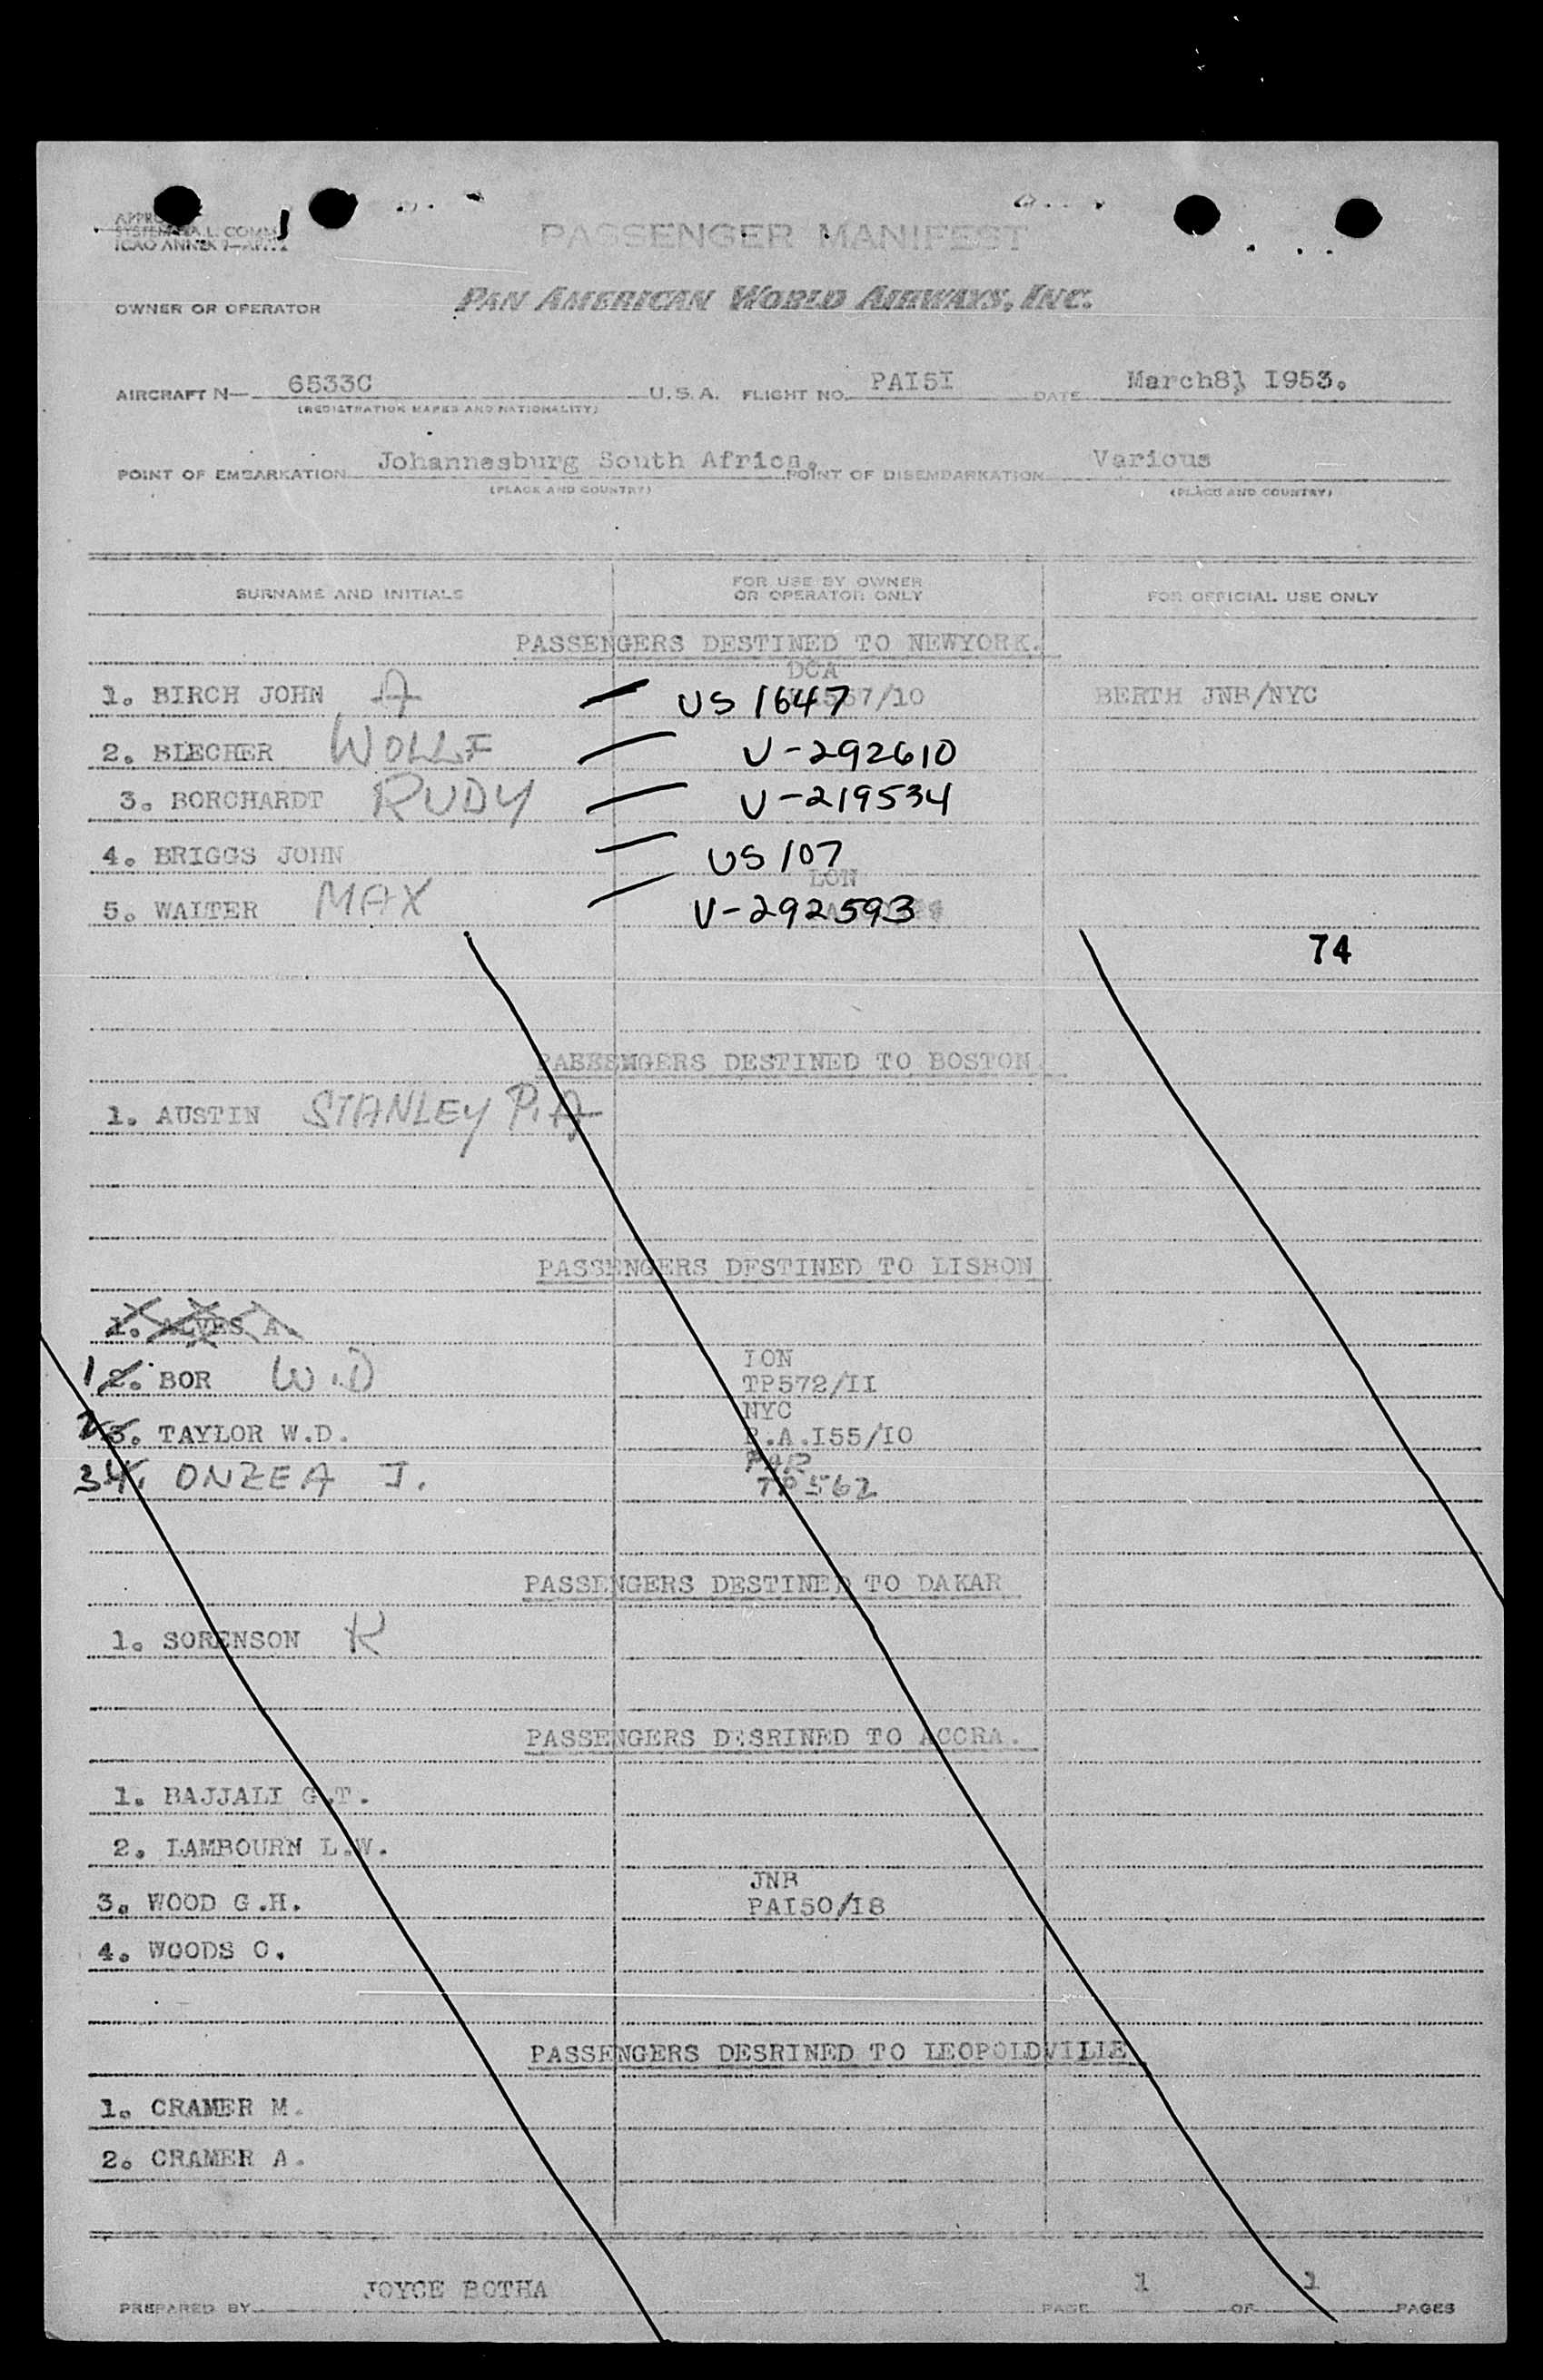 PASSENGER MANIFEST
ICAO ANNEX
OWNER OR OPERATOR PAN AMERICAN WORLD AIRWAYS, INC.
AIRCRAFT N— 6533C U.S.A. FLIGHT NO. PAI5I DATE March8, I953.
(REGISTRATION MARKS AND NATIONALITY)
POINT OF EMBARKATION Johannesburg South Africa. POINT OF DISEMBARKATION Various
(PLACE AND COUNTRY) (PLACE AND COUNTRY)
SURNAME AND INITIALS FOR USE BY OWNER OR OPERATOR ONLY FOR OFFICIAL USE ONLY
PASSENGERS DESTINED TO NEWYORK.
DCA
1. BIRCH JOHN A — US 1647 /10 BERTH JNB/NYC
2. BLECHER WOLLF — V-292610
3. BORCHARDT RUDY — V-219534
4. BRIGGS JOHN — US 107
LON
5. WALTER MAX — V-292593
74
PASSENGERS DESTINED TO BOSTON.
1. AUSTIN STANLEY P.A
PASSENGERS DESTINED TO LISBON
1. ALVES A.
LON
1 2. BOR W.D TP572/II
NYC
2 3. TAYLOR W.D. P.A.I55/IO
PAR
3 4. ONZEA J. TP562
PASSENGERS DESTINED TO DAKAR
1. SORENSON K
PASSENGERS DESRINED TO ACCRA.
1. BAJJALI G.T.
2. LAMBOURN L.W.
JNB
3. WOOD G.H. PAI50/I8
4. WOODS C.
PASSENGERS DESRINED TO LEOPOLDVILLE
1. CRAMER M.
2. CRAMER A.
PREPARED BY JOYCE BOTHA PAGE 1 OF 1 PAGES